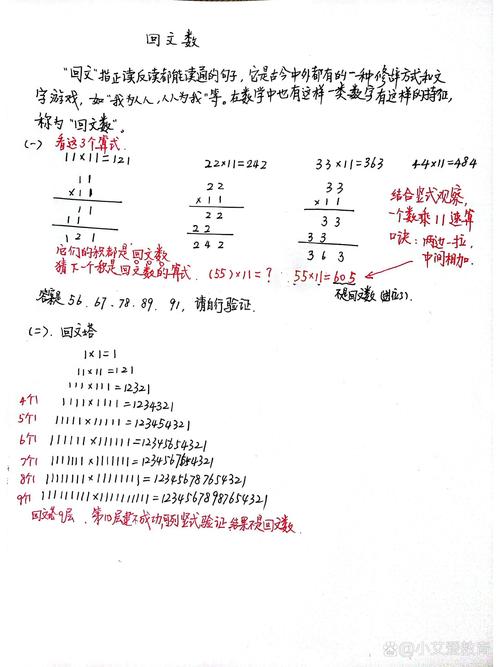 回文数
"回文"指正读反读都能读通的句子,它是古今中外都有的一种修辞方式和文
字游戏,如"我为人人,人人为我"等。在数学中也有这样一类数字有这样的特征,
称为"回文数"。
(一) 看这3个算式.
11×11=121 22×11=242 33×11=363 44×11=484
11 22 33
×11 ×11 ×11
11 22 33
11 22 33
121 242 363
结合竖式观察,
一个数乘11速算
口诀:两边一拉,
中间相加.
它们的积都是回文数
猜下一个积是回文数的算式.(55)×11=? 55×11=605
不是回文数
答案是56.67.78.89.91,请自行验证.
(二).回文塔
1×1=1
11×11=121
111×111=12321
4个1 1111×1111=1234321
5个1 11111×11111=123454321
6个1 111111×111111=12345654321
7个1 1111111×1111111=1234567654321
8个1 11111111×11111111=123456787654321
9个1 111111111×111111111=12345678987654321
回文塔9层、第10层建不成功 列竖式验证结果不是回文数.
小艾爱教育